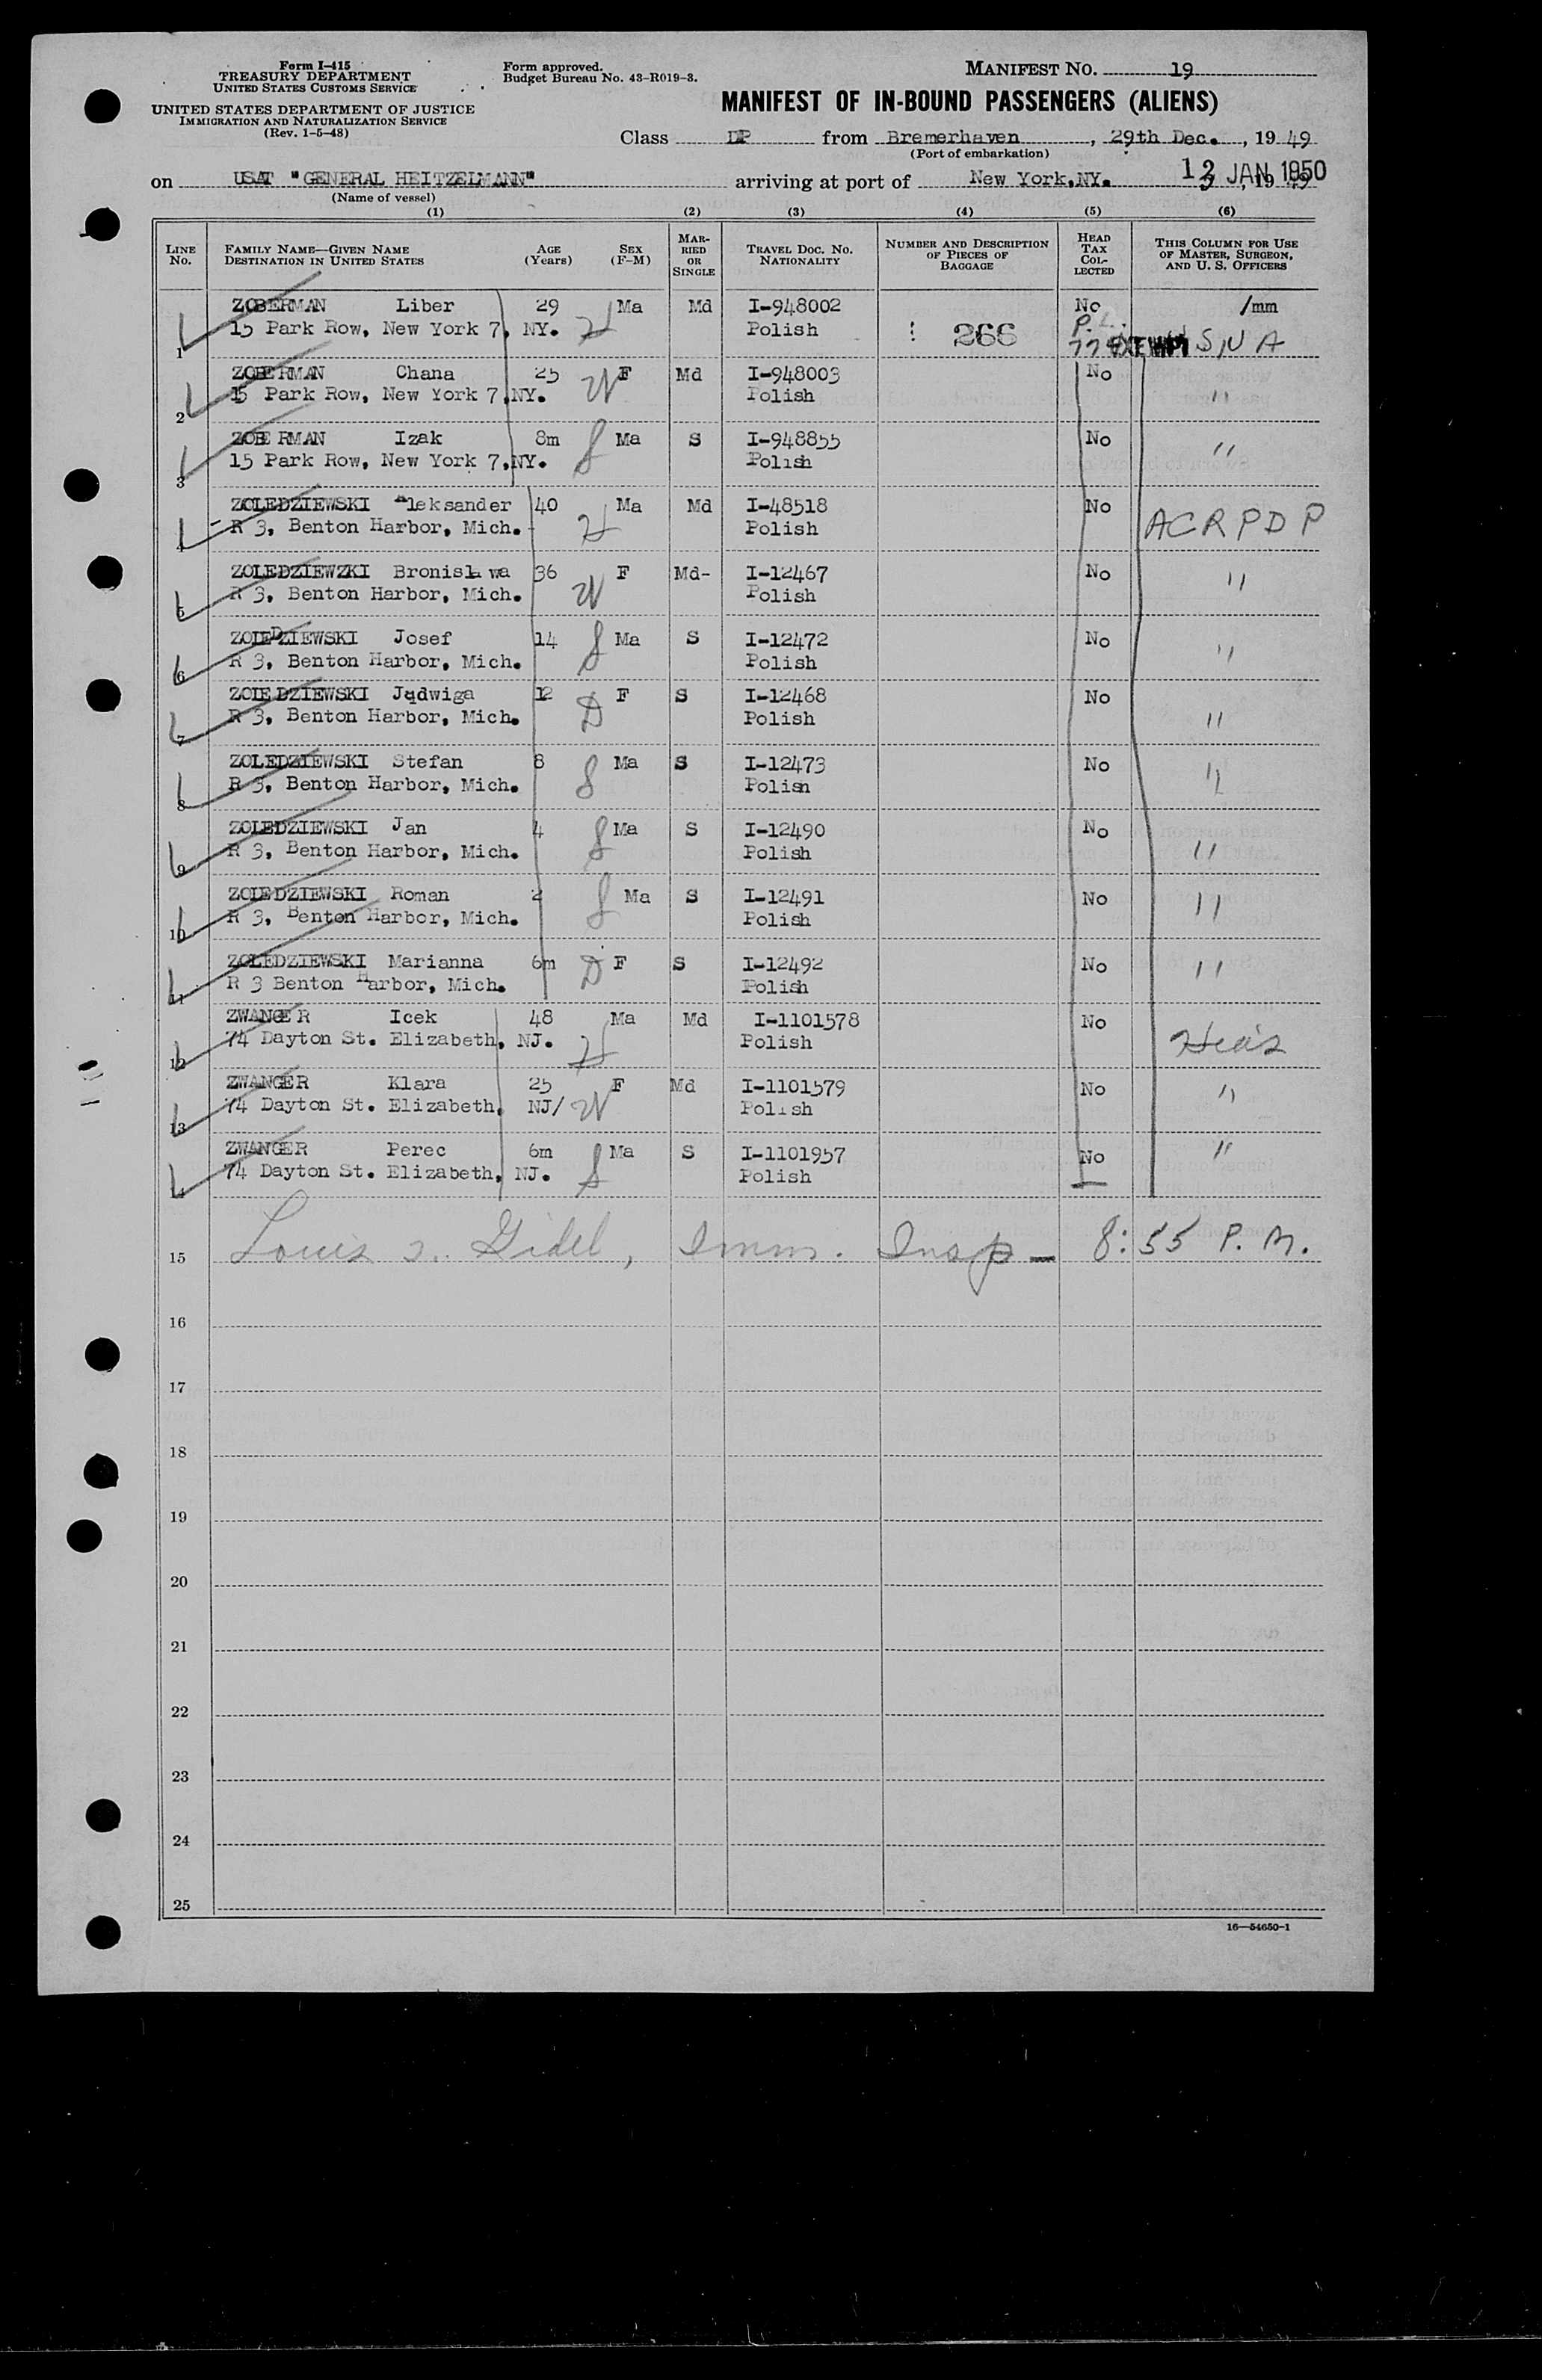 Form I-415
TREASURY DEPARTMENT
UNITED STATES CUSTOMS SERVICE
UNITED STATES DEPARTMENT OF JUSTICE
IMMIGRATION AND NATURALIZATION SERVICE
(Rev. 1-5-48)
Form approved.
Budget Bureau No. 43-R019-3.
MANIFEST NO. 19
MANIFEST OF IN-BOUND PASSENGERS (ALIENS)
Class DP from Bremerhaven, 29th Dec., 1949
(Port of embarkation)
on USAT "GENERAL HEITZELMANN" arriving at port of New York,NY. 12 JAN 1950
(Name of vessel)
(1) (2) (3) (4) (5) (6)
LINE NO. FAMILY NAME—GIVEN NAME DESTINATION IN UNITED STATES AGE (Years) SEX (F-M) MARRIED OR SINGLE TRAVEL DOC. NO. NATIONALITY NUMBER AND DESCRIPTION OF PIECES OF BAGGAGE HEAD TAX COLLECTED THIS COLUMN FOR USE OF MASTER, SURGEON, AND U. S. OFFICERS
1 ZOBERMAN Liber 29 H Ma Md I-948002 No /mm
15 Park Row, New York 7, NY. Polish 266 P.L. 774 EXEMPT S N A
2 ZOBERMAN Chana 25 W F Md I-948003 No "
15 Park Row, New York 7,NY. Polish
3 ZOBERMAN Izak 8m S Ma S I-948855 No "
15 Park Row, New York 7,NY. Polish
4 ZOLEDZIEWSKI Aleksander 40 H Ma Md I-48518 No ACRPDP
R 3, Benton Harbor, Mich. Polish
5 ZOLEDZIEWZKI Bronislawa 36 W F Md- I-12467 No "
R 3, Benton Harbor, Mich. Polish
6 ZOLEDZIEWSKI Josef 14 S Ma S I-12472 No "
R 3, Benton Harbor, Mich. Polish
7 ZOLEDZIEWSKI Jadwiga 12 D F S I-12468 No "
R 3, Benton Harbor, Mich. Polish
8 ZOLEDZIEWSKI Stefan 8 S Ma S I-12473 No "
R 3, Benton Harbor, Mich. Polish
9 ZOLEDZIEWSKI Jan 4 S Ma S I-12490 No "
R 3, Benton Harbor, Mich. Polish
10 ZOLEDZIEWSKI Roman 2 S Ma S I-12491 No "
R 3, Benton Harbor, Mich. Polish
11 ZOLEDZIEWSKI Marianna 6m D F S I-12492 No "
R 3 Benton Harbor, Mich. Polish
12 ZWANGER Icek 48 H Ma Md I-1101578 No Hias
74 Dayton St. Elizabeth, NJ. Polish
13 ZWANGER Klara 25 W F Md I-1101579 No "
74 Dayton St. Elizabeth, NJ/ Polish
14 ZWANGER Perec 6m S Ma S I-1101957 No "
74 Dayton St. Elizabeth, NJ. Polish
15 Louis Gidel, Imm. Insp - 8:55 P.M.
16
17
18
19
20
21
22
23
24
25
16—54650-1